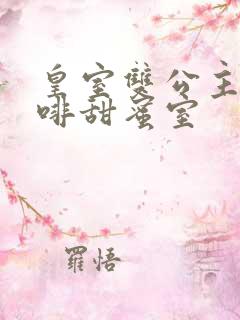 皇室雙公主
啡甜蜜室
羅悟